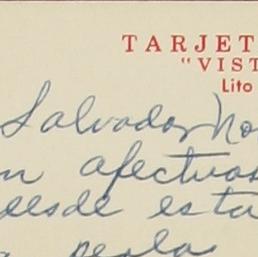 TARJET
"VIST
Lito
Salvador No
n afectuos
desde esta
a perla